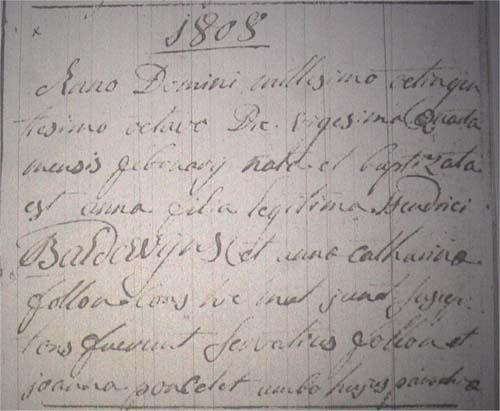 x
1808
Anno Domini millesimo octingen
tesimo octavo Die vigesima Quarta
mensis februarij nata et baptizata
est anna filia legitima Hendrici
Baldewijns et anna catharina
follon
tons fuerunt Servatius follon et
joanna poncelet ambo hujus